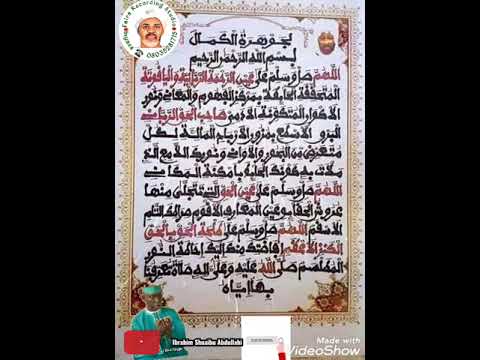 Recording Studio
جوهرة الكمال
بسم الله الرحمن الرحيم
اللهم صل وسلم على عين الرحمة الربانية والياقوتة
المتحققة الحائطة بمركز الفهوم والمعاني ونور
الاكوان المتكونة الادمي صاحب الحق الرباني
البرق الاسطع بمزون الارباح المالئة لكل
متعرض من البحور والاواني ونورك اللامع الذي
ملات به كونك الحائط بامكنة المكاني
اللهم صل وسلم على عين الحق التي تتجلى منها
عروش الحقائق عين المعارف الاقوم صراطك التام
الاسقم اللهم صل وسلم على طلعة الحق بالحق
الكنز الاعظم افاضتك منك اليك احاطة النور
المطلسم صلى الله عليه وعلى اله صلاة تعرفنا
بها اياه
Ibrahim Shuaibu Abdullahi
Made with
VideoShow